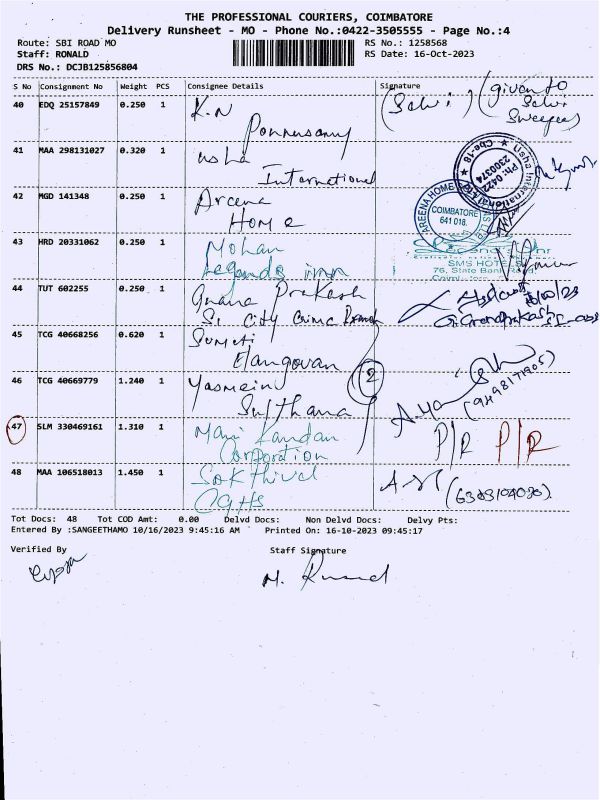 THE PROFESSIONAL COURIERS, COIMBATORE
Delivery Runsheet - MO - Phone No.:0422-3505555 - Page No.:4
Route: SBI ROAD MO RS No.: 1258568
Staff: RONALD RS Date: 16-Oct-2023
DRS No.: DCJB125856804
S No Consignment No Weight PCS Consignee Details Signature
40 EDQ 25157849 0.250 1 K.N Ponnusamy (Selvi) (given to Selvi Sweeper)
41 MAA 298131027 0.320 1 usha International
Usha International Ltd.
Cbe-18
Ph: 0422
2300374
42 MGD 141348 0.250 1 Areena Home
AREENA HOME
COIMBATORE
641 018.
43 HRD 20331062 0.250 1 Mohan Legends inn
SMS HOTEL
76, State Bank Road
44 TUT 602255 0.250 1 Gnana Prakash
Si City Crime Branch
45 TCG 40668256 0.620 1 Sumeti Elangovan
46 TCG 40669779 1.240 1 Yasmein Sulthana
2
(9498171905)
47 SLM 330469161 1.310 1 Mani Kandan Corporation P/R P/R
48 MAA 106518013 1.450 1 Sakthivel CGHS
Tot Docs: 48 Tot COD Amt: 0.00 Delvd Docs: Non Delvd Docs: Delvy Pts:
Entered By :SANGEETHAMO 10/16/2023 9:45:16 AM Printed On: 16-10-2023 09:45:17
Verified By Staff Signature